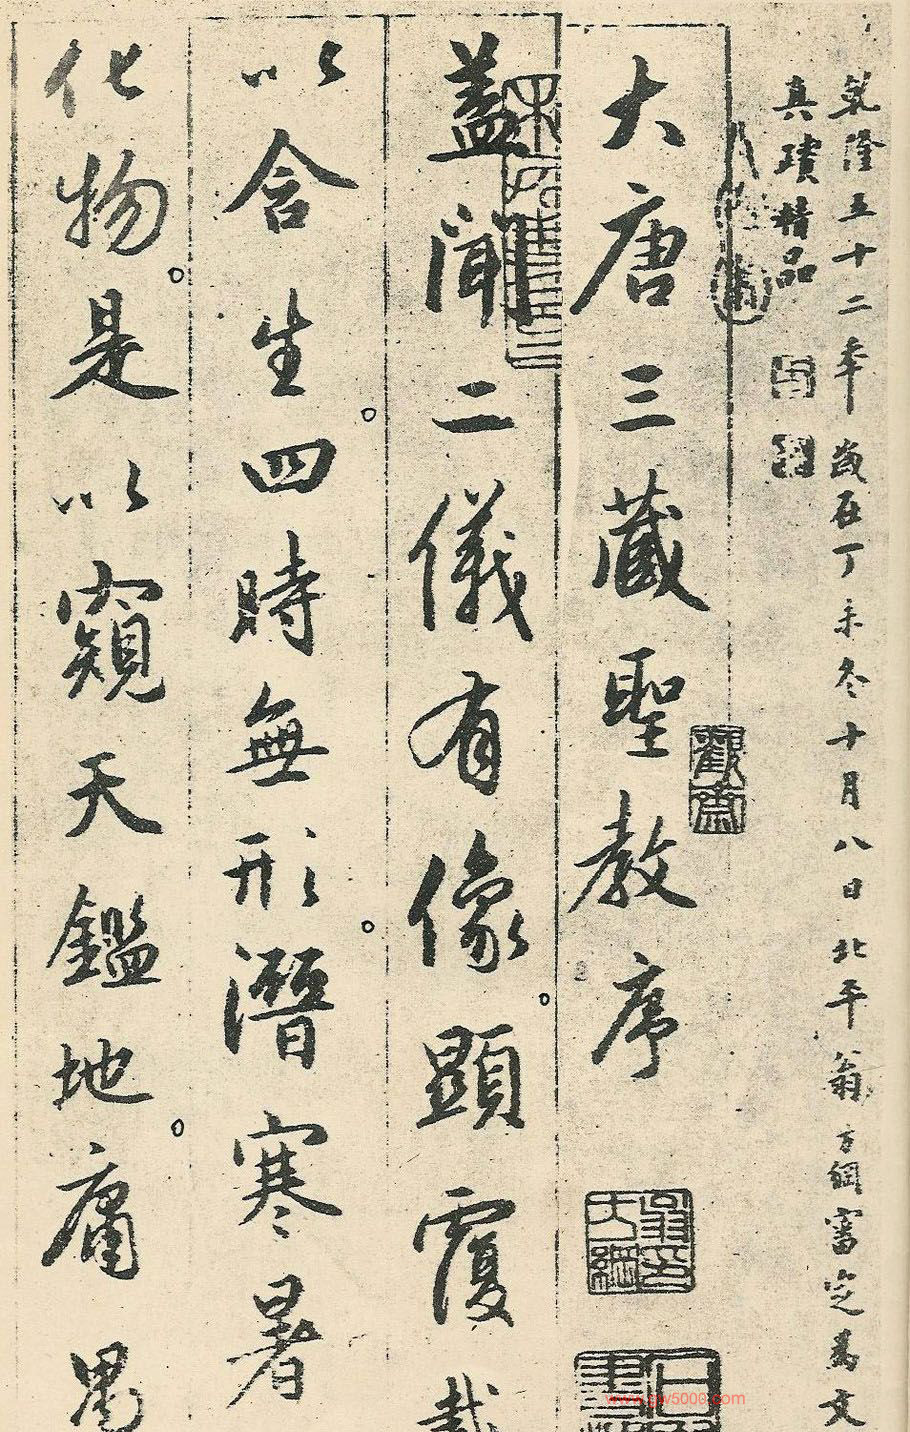 乾隆五十二年歲在丁未冬十月八日北平翁方綱審定為文
真蹟精品
大唐三藏聖教序
蓋聞二儀有像顯覆載
以含生四時無形潛寒暑
化物是以窺天鑑地庸愚
觀齋
翁方綱
www.gw5000.com